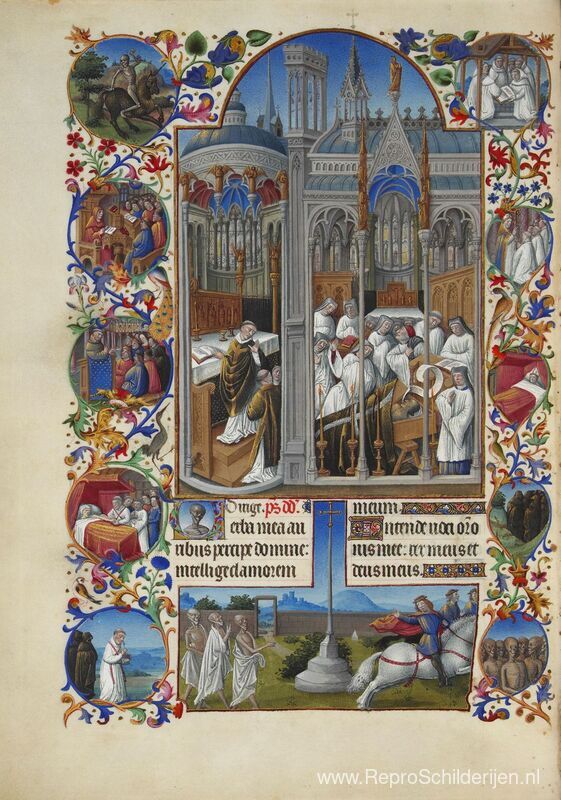 Dirige. ps dd.
Verba mea au
ribus percipe domine:
intellige clamorem
meum.
Intende uoci oro
nis mee: rex meus et
deus meus.
www.ReproSchilderijen.nl